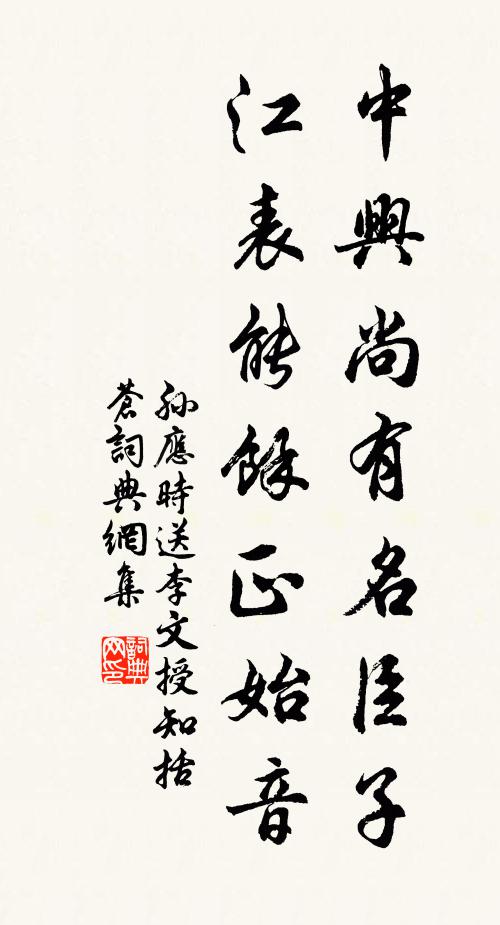 中興尚有名臣子
江表能餘正始音
孫應時送李文授知括
蒼詞典網集
詞典
网印